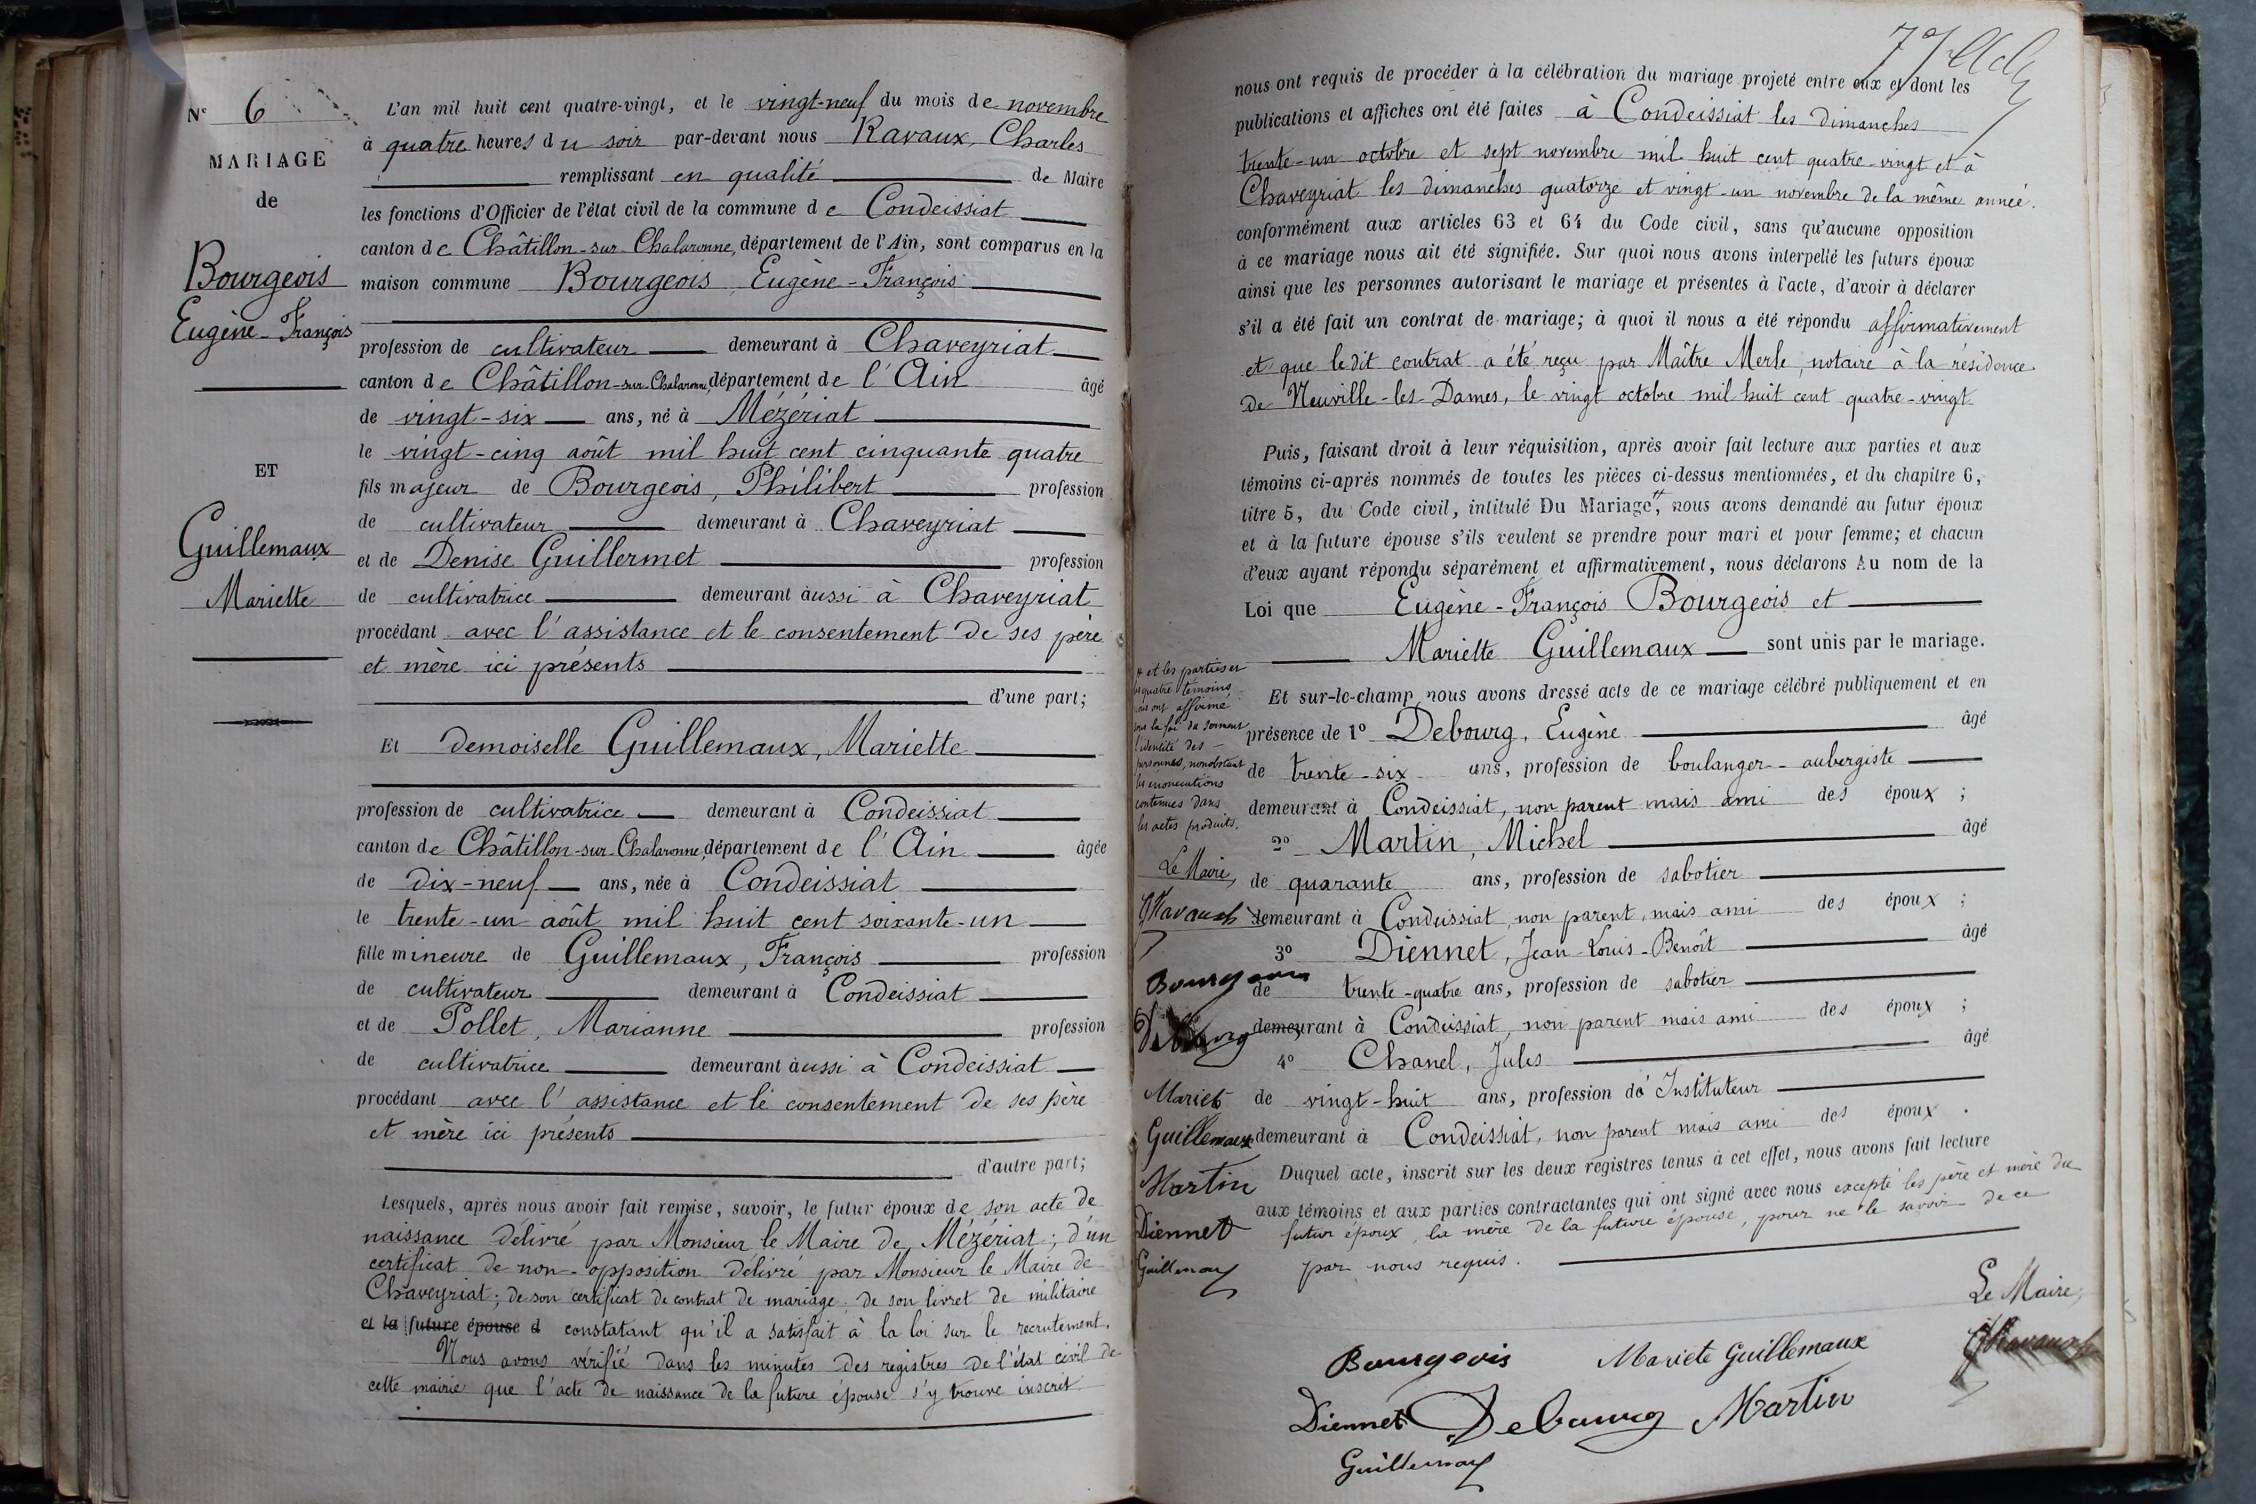 Nº 6
MARIAGE
de
Bourgeois
Eugène-François
ET
Guillemaux
Mariette
L'an mil huit cent quatre-vingt, et le vingt-neuf du mois de novembre
à quatre heures du soir par-devant nous Ravaux, Charles
remplissant en qualité de Maire
les fonctions d'Officier de l'état civil de la commune de Condeissiat
canton de Châtillon-sur-Chalaronne, département de l'Ain, sont comparus en la
maison commune Bourgeois, Eugène-François
profession de cultivateur demeurant à Chaveyriat
canton de Châtillon-sur-Chalaronne, département de l'Ain âgé
de vingt-six ans, né à Mézériat
le vingt-cinq août mil huit cent cinquante quatre
fils majeur de Bourgeois, Philibert profession
de cultivateur demeurant à Chaveyriat
et de Denise Guillermet profession
de cultivatrice demeurant aussi à Chaveyriat
procédant avec l'assistance et le consentement de ses père
et mère ici présents
d'une part;
Et demoiselle Guillemaux, Mariette
profession de cultivatrice demeurant à Condeissiat
canton de Châtillon-sur-Chalaronne, département de l'Ain âgée
de dix-neuf ans, née à Condeissiat
le trente-un août mil huit cent soixante-un
fille mineure de Guillemaux, François profession
de cultivateur demeurant à Condeissiat
et de Pollet, Marianne profession
de cultivatrice demeurant aussi à Condeissiat
procédant avec l'assistance et le consentement de ses père
et mère ici présents
d'autre part;
Lesquels, après nous avoir fait remise, savoir, le futur époux de son acte de
naissance délivré par Monsieur le Maire de Mézériat; d'un
certificat de non-opposition délivré par Monsieur le Maire de
Chaveyriat; de son certificat de contrat de mariage; de son livret de militaire
et la future épouse d constatant qu'il a satisfait à la loi sur le recrutement.
Nous avons vérifié dans les minutes des registres de l'état civil de
cette mairie que l'acte de naissance de la future épouse s'y trouve inscrit.
nous ont requis de procéder à la célébration du mariage projeté entre eux et dont les
publications et affiches ont été faites à Condeissiat les dimanches
trente-un octobre et sept novembre mil huit cent quatre-vingt et à
Chaveyriat les dimanches quatorze et vingt-un novembre de la même année.
conformément aux articles 63 et 64 du Code civil, sans qu'aucune opposition
à ce mariage nous ait été signifiée. Sur quoi nous avons interpellé les futurs époux
ainsi que les personnes autorisant le mariage et présentes à l'acte, d'avoir à déclarer
s'il a été fait un contrat de mariage; à quoi il nous a été répondu affirmativement
et que ledit contrat a été reçu par Maître Merle, notaire à la résidence
de Neuville-les-Dames, le vingt octobre mil huit cent quatre-vingt
Puis, faisant droit à leur réquisition, après avoir fait lecture aux parties et aux
témoins ci-après nommés de toutes les pièces ci-dessus mentionnées, et du chapitre 6,
titre 5, du Code civil, intitulé Du Mariage, nous avons demandé au futur époux
et à la future épouse s'ils veulent se prendre pour mari et pour femme; et chacun
d'eux ayant répondu séparément et affirmativement, nous déclarons Au nom de la
Loi que Eugène-François Bourgeois et
Mariette Guillemaux sont unis par le mariage.
Et sur-le-champ nous avons dressé acte de ce mariage célébré publiquement et en
présence de 1º Debourg, Eugène âgé
de trente-six ans, profession de boulanger-aubergiste
demeurant à Condeissiat, non parent mais ami des époux;
2º Martin, Michel âgé
de quarante ans, profession de sabotier
demeurant à Condeissiat, non parent, mais ami des époux;
3º Diennet, Jean-Louis-Benoît âgé
de trente-quatre ans, profession de sabotier
demeurant à Condeissiat, non parent mais ami des époux;
4º Chanel, Jules âgé
de vingt-huit ans, profession d'Instituteur
demeurant à Condeissiat, non parent mais ami des époux.
Duquel acte, inscrit sur les deux registres tenus à cet effet, nous avons fait lecture
aux témoins et aux parties contractantes qui ont signé avec nous excepté les père et mère du
futur époux, la mère de la future épouse, pour ne le savoir de ce
par nous requis.
# et les parties et
les quatre témoins
nous ont affirmé
sous la foi du serment
l'identité des
personnes, nonobstant
les énonciations
contenues dans
les actes produits.
Le Maire,
Ravaux
Bourgeois
Debourg
Mariete
Guillemaux
Martin
Diennet
Guillemaux
Le Maire,
Ravaux
Bourgeois Mariete Guillemaux
Diennet Debourg Martin
Guillemaux